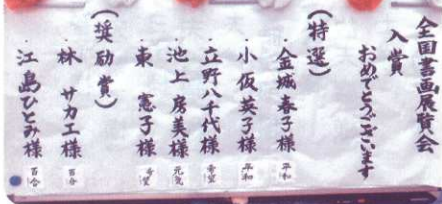 全国書画展覧会
入賞
おめでとうございます
(特選)
・金城春子様 平和
・小仮英子様 平和
・立野八千代様 希望
・池上房美様 元気
・東憲子様 希望
(奨励賞)
・林サカエ様 百合
・江島ひとみ様 百合